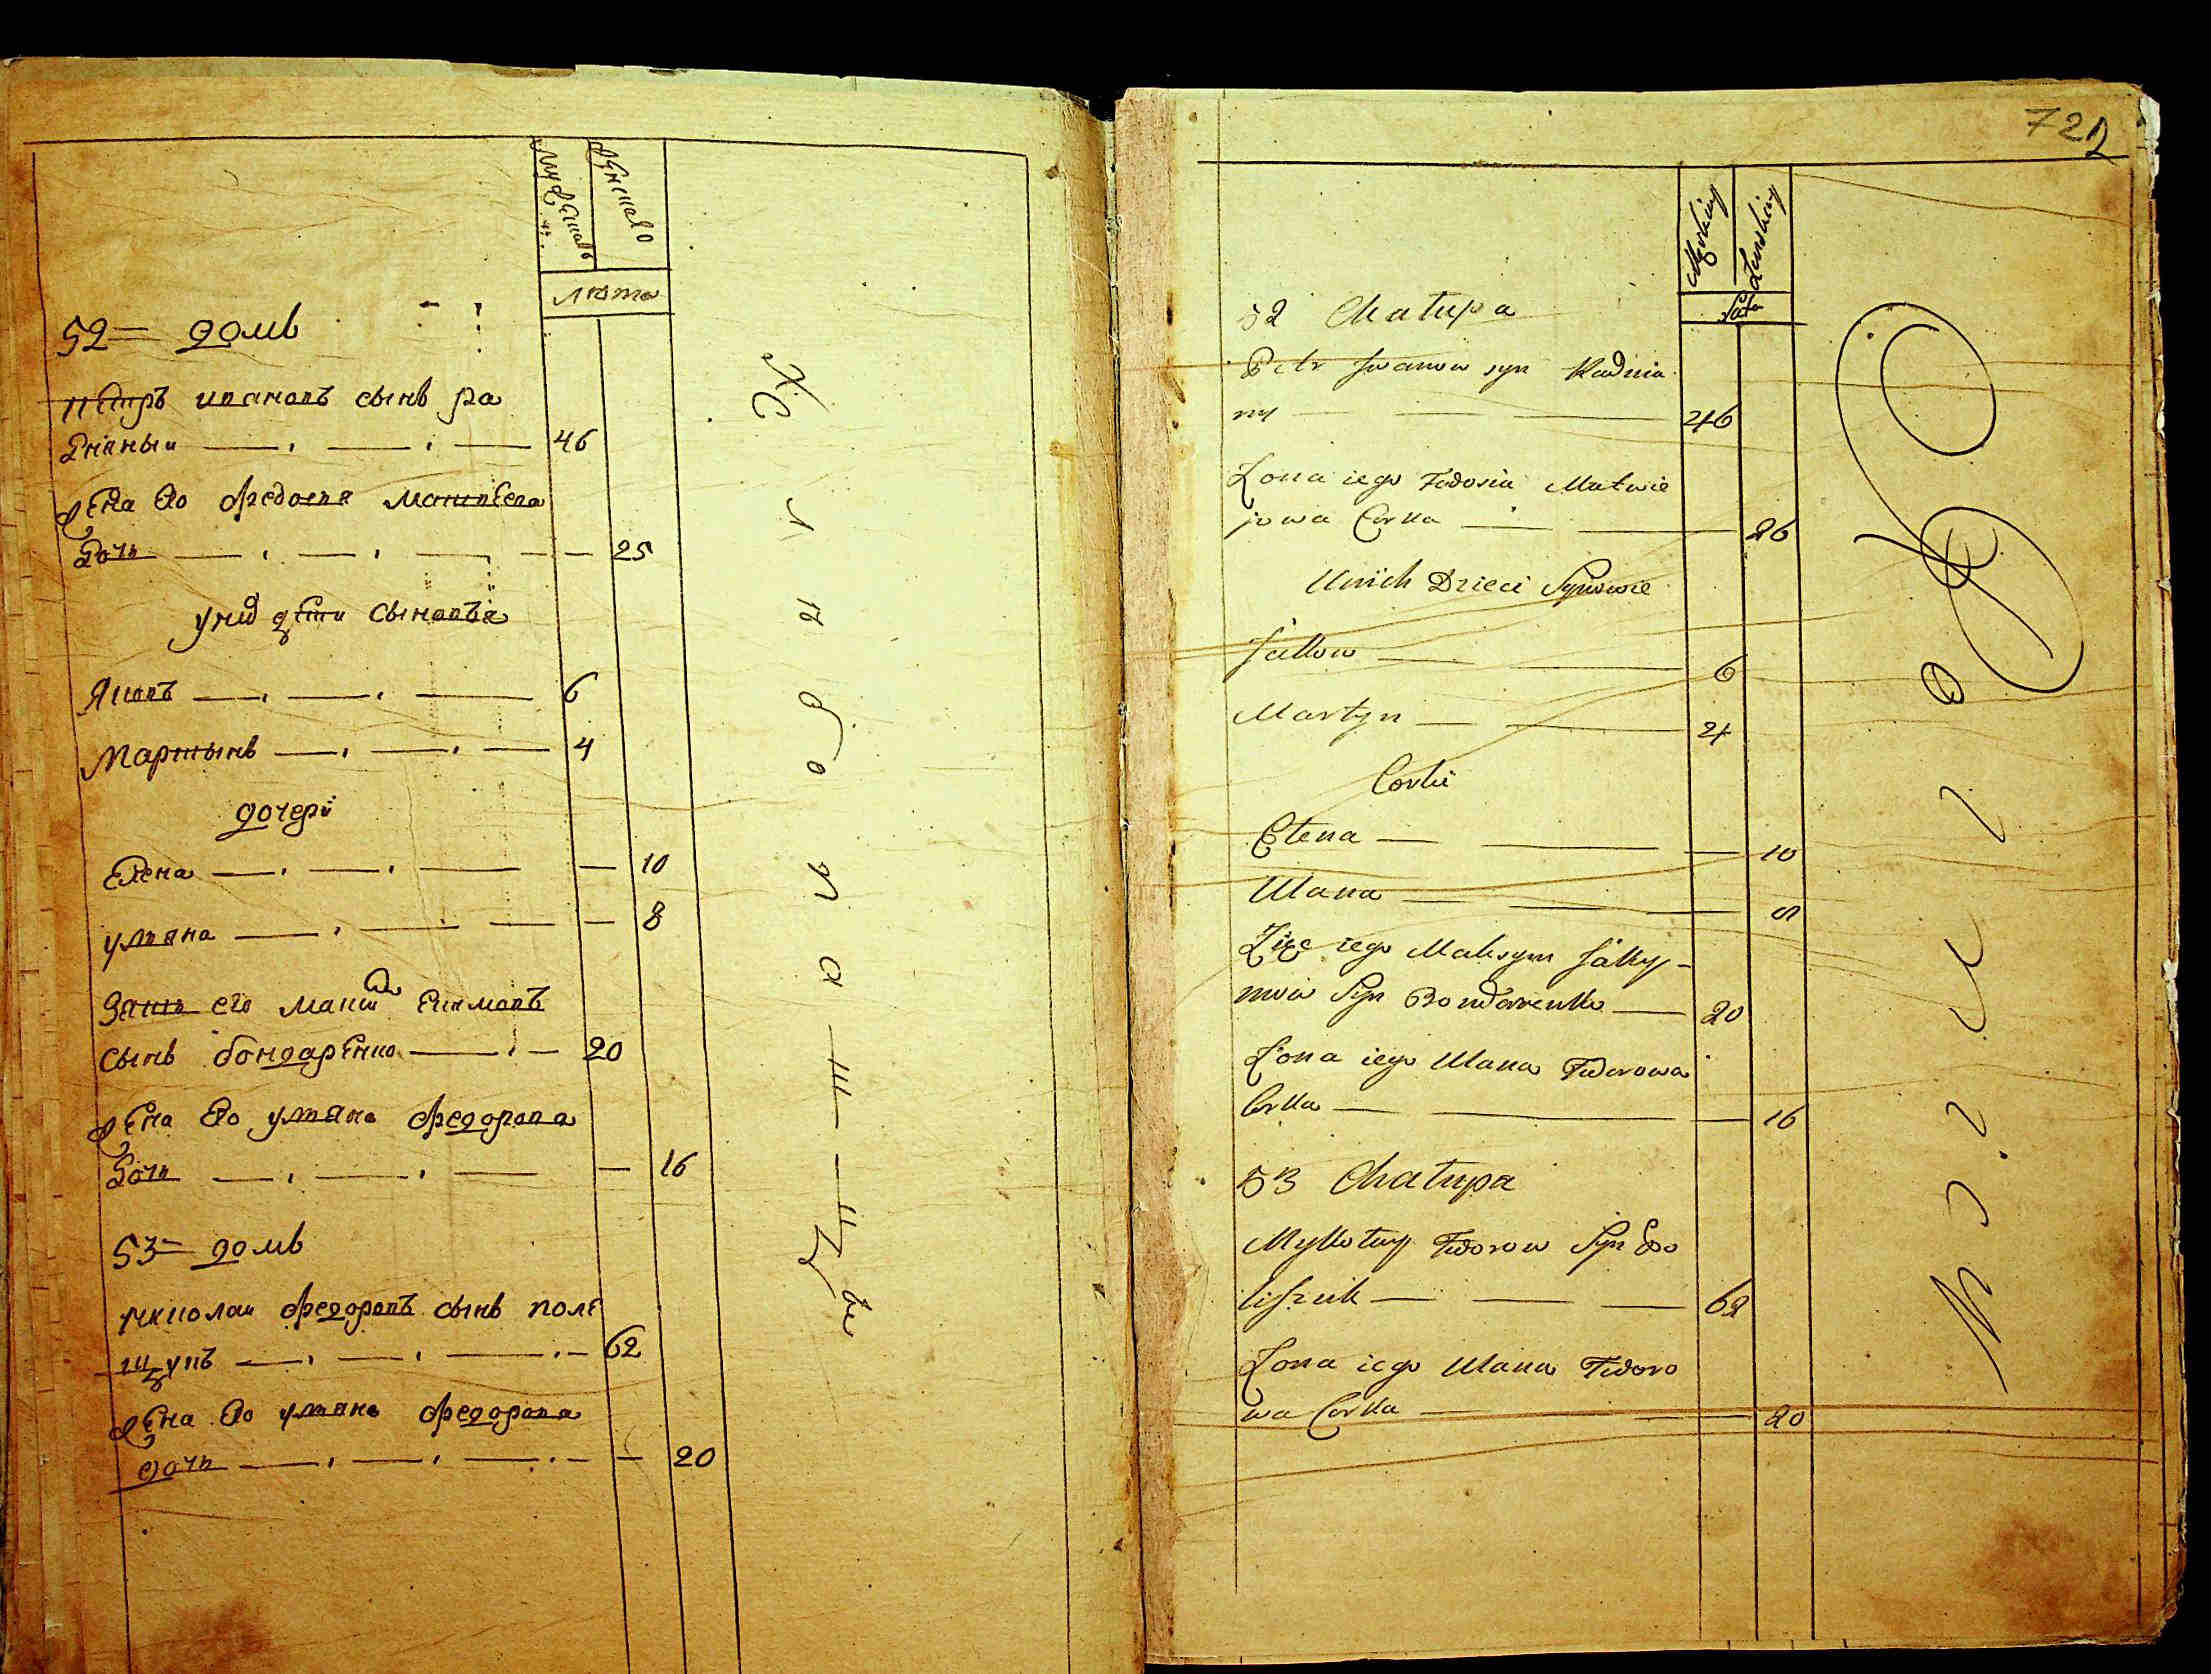 мужеска
женска
лѣта
52 = домъ
петръ ивановъ сынъ ра
дняныи 46
жена его федосия матвеева
дочь 25
у них дети сыновья
Яковъ 6
мартынъ 4
дочери
Елена 10
уляна 8
Зять его максим Екимовъ
сынъ бондаренко 20
жена его уляна федорова
дочь 16
53 = домъ
николаи федоровъ сынъ поле
щукъ 62
жена его уляна федорова
дочь 20
722
Męskiey
Żenskiey
Lata
52 Chałupa
Petr Iwanow syn Radnia
ny 46
Żona iego Fedosia Matwie
jowa Corka 26
U nich Dzieci Synowie
Jakow 6
Martyn 4
Corki
Elena 10
Ulana 8
Zięć iego Maksym Jakky-
mow Syn Bondarenko 20
Żona iego Ulana Fedorowa
Corka 16
53 Chałupa
Mykołay Fedorow Syn Po
liszuk 62
Żona iego Ulana Fedoro
wa Corka 20